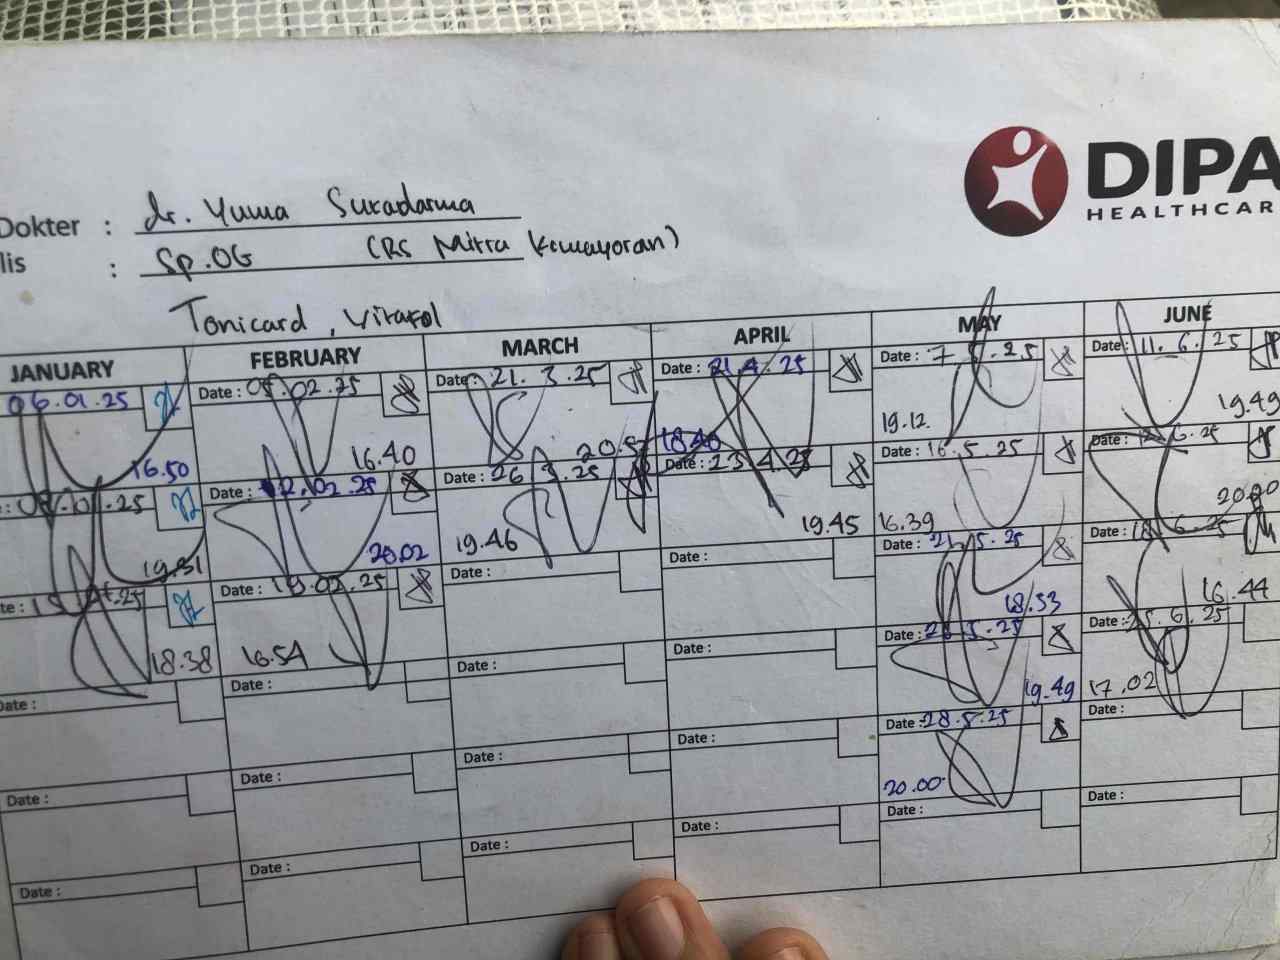 DIPA
HEALTHCAR
Dokter : dr. Yuma Suradarma
lis : Sp.OG (RS Mitra Kemayoran)
Tonicard, Virafol
JANUARY FEBRUARY MARCH APRIL MAY JUNE
06.01.25 Date : 05.02.25 Date : 21.3.25 Date : 21.4.25 Date : 7.5.25 Date : 11.6.25
16.50 16.40 18.40 19.12 19.49
Date : 12.02.25 Date : 26.3.25 Date : 23.4.25 Date : 16.5.25 Date :
19.31 20.02 19.46 19.45 16.39 20.20
Date : 19.02.25 Date : Date : Date : 21.5.25 Date : 18.6.25
18.38 16.54 18.33 16.44
Date : Date : Date : Date : Date : Date : 25.6.25
19.49 17.02
Date : Date : Date : Date : Date : 28.5.25 Date :
20.00
Date : Date : Date : Date : Date : Date :